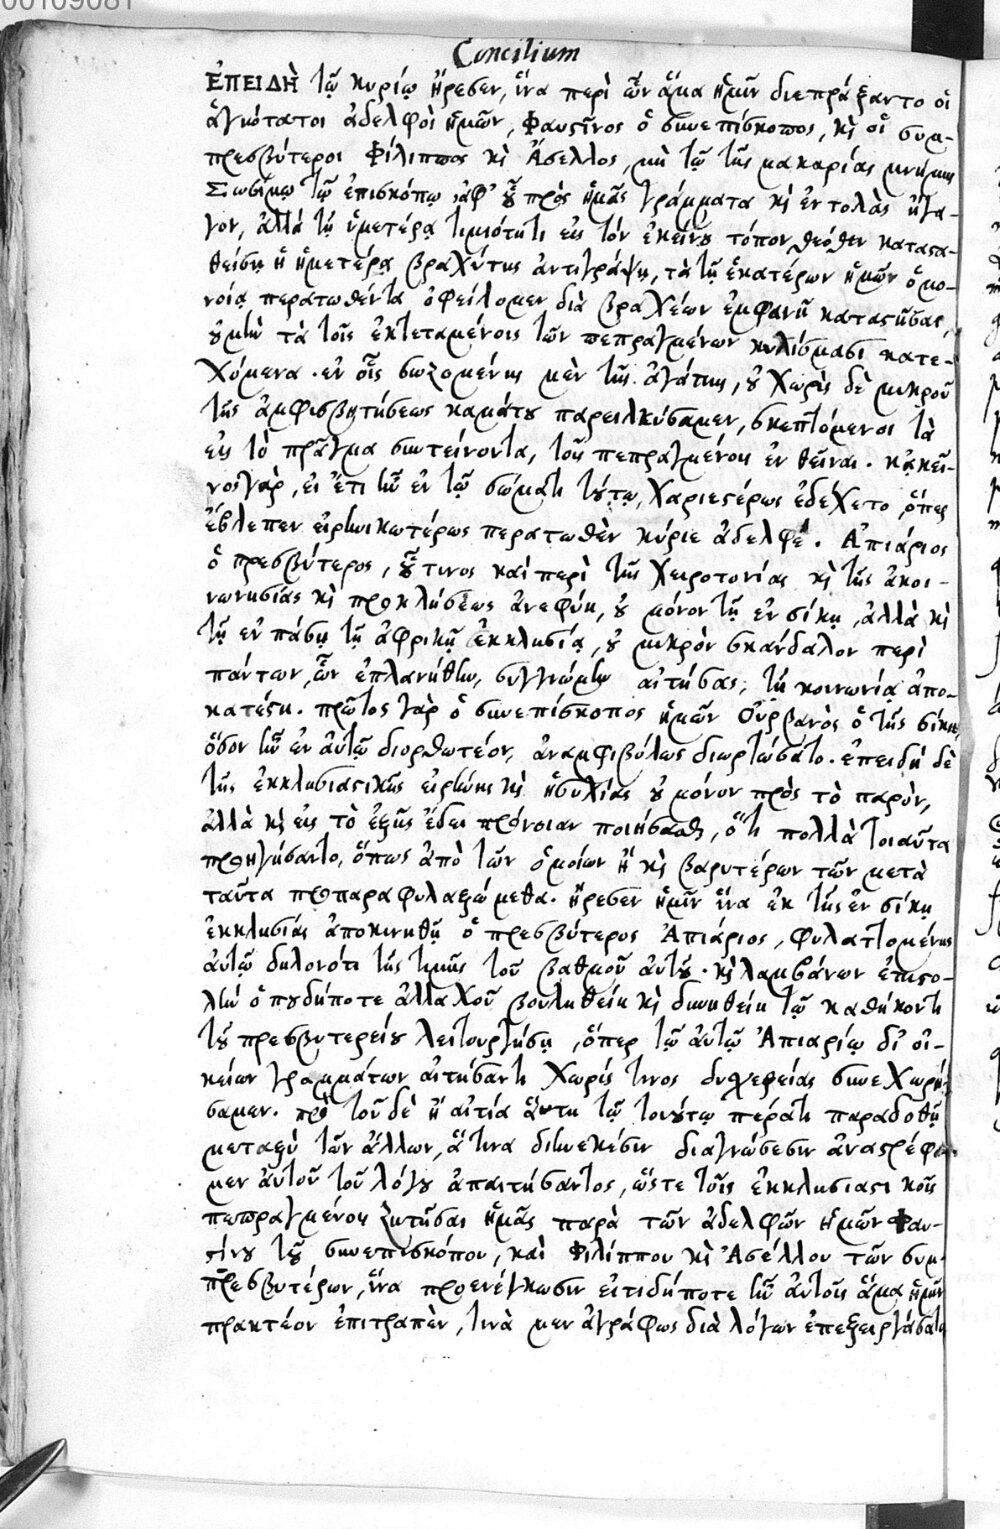 00109081
Concilium
ἘΠΕΙΔῊ τῷ κυρίῳ ἤρεσεν, ἵνα περὶ ὧν ἅμα ἡμῖν διεπράξαντο οἱ
ἁγιότατοι ἀδελφοὶ ἡμῶν, Φαυστῖνος ὁ συνεπίσκοπος, κὶ οἱ συμ-
πρεσβύτεροι Φίλιππος κὶ Ἄσελλος, μὴ τῷ τῆς μακαρίας μνήμης
Σωσίμῳ τῷ ἐπισκόπῳ, ἀφ' οὗ πρὸς ἡμᾶς γράμματα κὶ ἐντολὰς ἤγα-
γον, ἀλλὰ τῇ ὑμετέρᾳ τιμιότητι εἰς τὸν ἐκείνου τόπον θεόθεν κατασα-
θείσῃ ἡ ἡμετέρα βραχύτης ἀντιγράψῃ, τὰ τῇ ἑκατέρων ἡμῶν ὁμο-
νοίᾳ περατωθέντα ὀφείλομεν διὰ βραχέων ἐμφανῆ καταστῆσαι,
οὐ μὴν τὰ τοῖς ἐκτεταμένοις τῶν πεπραγμένων κυλίσμασι κατε-
χόμενα. ἐν οἷς σωζομένης μὲν τῆς ἀγάπης, οὐ χωρὶς δὲ μικροῦ
τῆς ἀμφισβητήσεως καμάτου παρειλκύσαμεν, σκεπτόμενοι τὰ
εἰς τὸ πρᾶγμα συντείνοντα, τοῖς πεπραγμένοις ἐνθεῖναι. κἀκεῖ-
νος γὰρ, εἰ ἔτι ἦν ἐν τῷ σώματι τούτῳ, χαριεστέρως ἐδέχετο, ὅπερ
ἔβλεπεν εἰρηνικωτέρως περατωθὲν κύριε ἀδελφέ. Ἀπιάριος
ὁ πρεσβύτερος, οὗτινος καὶ περὶ τῆς χειροτονίας κὶ τῆς ἀκοι-
νωνησίας κὶ προκλήσεως ἀνεφύη, οὐ μόνον τῇ ἐν σίκῃ, ἀλλὰ κὶ
τῇ ἐν πάσῃ τῇ ἀφρικῇ ἐκκλησίᾳ, οὐ μικρὸν σκάνδαλον περὶ
πάντων, ὧν ἐπλανήθη, συγγνώμην αἰτήσας, τῇ κοινωνίᾳ ἀπο-
κατέστη. πρῶτος γὰρ ὁ συνεπίσκοπος ἡμῶν Οὐρβανὸς ὁ τῆς σίκης
ὅσον ἦν ἐν αὐτῷ διορθωτέον, ἀναμφιβόλως διωρθώσατο. ἐπειδὴ δὲ
τῆς ἐκκλησιαστικῆς εἰρήνης κὶ ἡσυχίας οὐ μόνον πρὸς τὸ παρὸν,
ἀλλὰ κὶ εἰς τὸ ἑξῆς ἔδει πρόνοιαν ποιήσασθαι, ὅτι πολλὰ τοιαῦτα
προηγήσαντο, ὅπως ἀπὸ τῶν ὁμοίων ἢ κὶ βαρυτέρων τῶν μετὰ
ταῦτα προπαραφυλαξώμεθα. ἤρεσεν ἡμῖν ἵνα ἐκ τῆς ἐν σίκῃ
ἐκκλησίας ἀποκινηθῇ ὁ πρεσβύτερος Ἀπιάριος, φυλαττομένης
αὐτῷ δηλονότι τῆς τιμῆς τοῦ βαθμοῦ αὐτοῦ. κὶ λαμβάνων ἐπιστο-
λὴν ὁπουδήποτε ἀλλαχοῦ βουληθείη κὶ δυνηθείη τῷ καθήκοντι
τοῦ πρεσβυτερείου λειτουργήσῃ, ὅπερ τῷ αὐτῷ Ἀπιαρίῳ δι' οἰ-
κείων γραμμάτων αἰτήσαντι χωρίς τινος δυσχερείας συνεχωρή-
σαμεν. πρὸ τοῦ δὲ ἡ αἰτία αὕτη τῷ τοιούτῳ πέρατι παραδοθῇ
μεταξὺ τῶν ἄλλων, ἅτινα διηνεκέσιν διαγνώσεσιν ἀναστρέφο-
μεν αὐτοῦ τοῦ λόγου ἀπαιτήσαντος, ὥστε τοῖς ἐκκλησιαστικοῖς
πεπραγμένοις ζητῆσαι ἡμᾶς παρὰ τῶν ἀδελφῶν ἡμῶν Φαυ-
στίνου τοῦ συνεπισκόπου, καὶ Φιλίππου κὶ Ἀσέλλου τῶν συμ-
πρεσβυτέρων, ἵνα προενέγκωσιν εἴτι δήποτε ἦν αὐτοῖς ἅμα ἡμῖν
πρακτέον ἐπιτραπὲν, τινὰ μὲν ἀγράφως διὰ λόγων ἐπεξειργάσατο